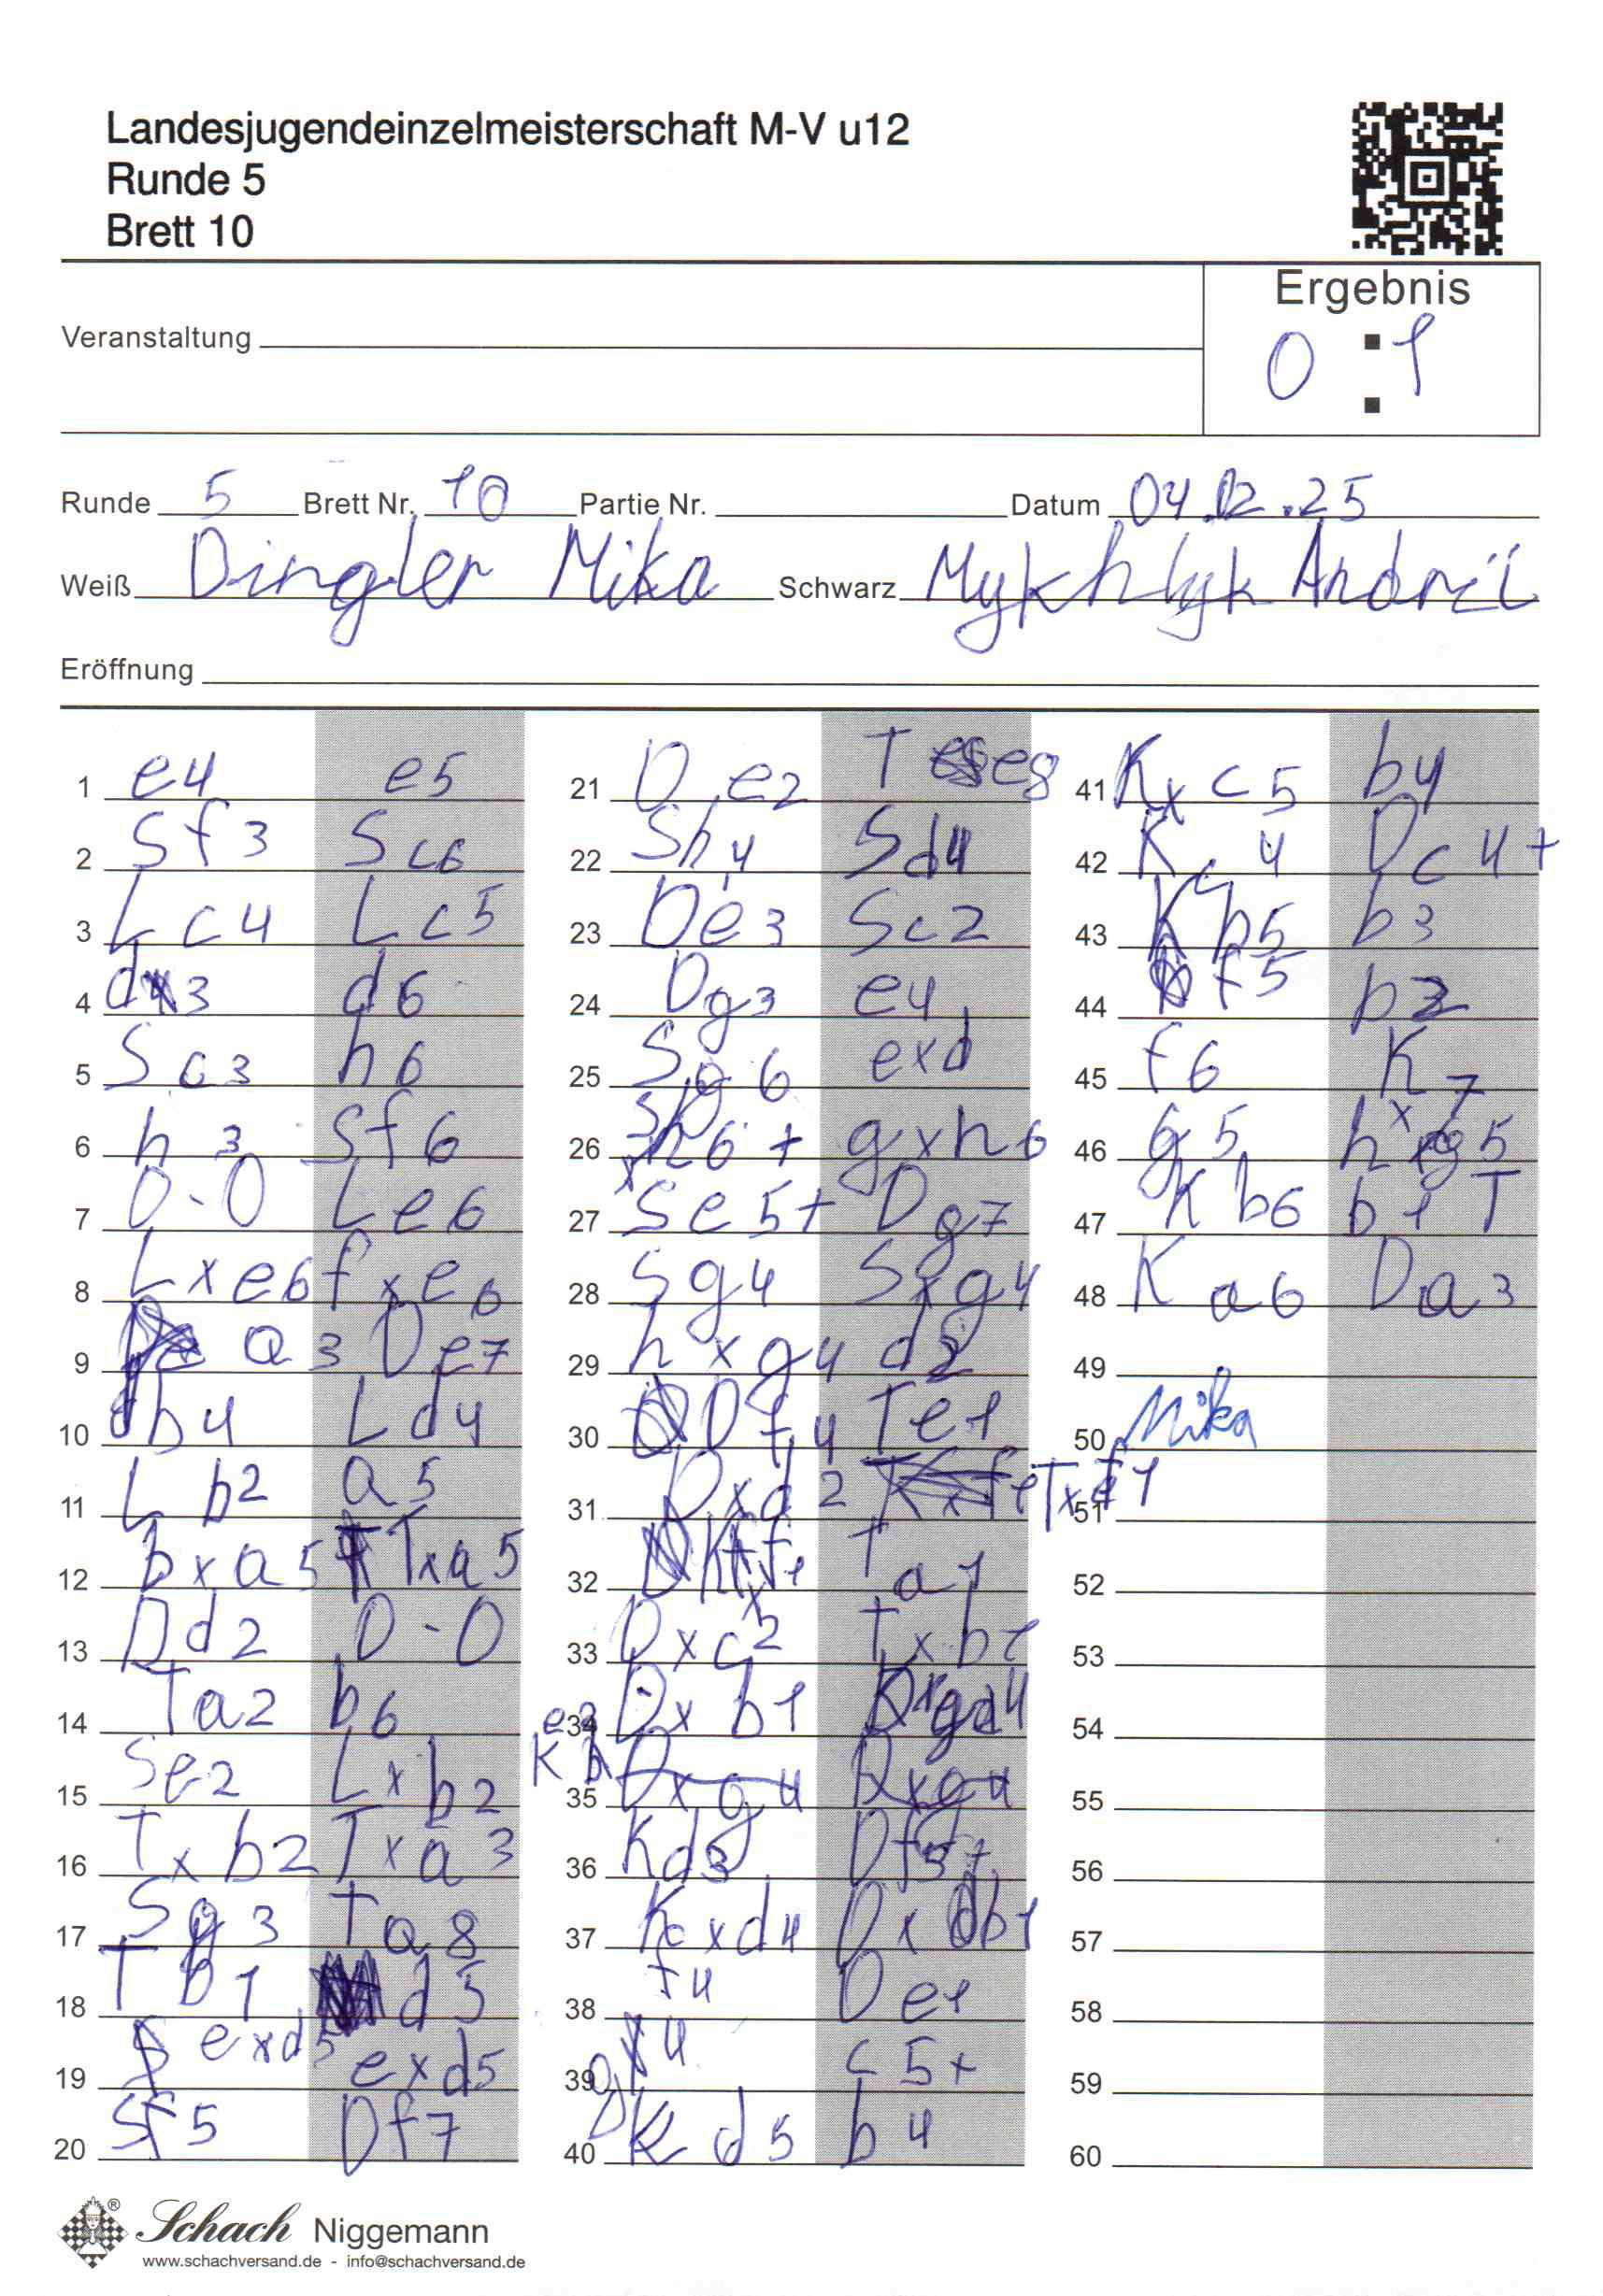 Landesjugendeinzelmeisterschaft M-V u12
Runde 5
Brett 10
Ergebnis
0 : 1
Veranstaltung
Runde 5 Brett Nr. 10 Partie Nr. Datum 04.02.25
Weiß Dingler Mika Schwarz Mykhlyk Andrii
Eröffnung
1 e4 e5
2 Sf3 Sc6
3 Lc4 Lc5
4 d3 d6
5 Sc3 h6
6 h3 Sf6
7 0-0 Le6
8 Lxe6 fxe6
9 a3 De7
10 b4 Ld4
11 Lb2 a5
12 bxa5 Txa5
13 Dd2 0-0
14 Ta2 b6
15 Se2 Lxb2
16 Txb2 Txa3
17 Sg3 Ta8
18 Tb1 d5
19 exd5 exd5
20 Sf5 Df7
21 De2 Te8
22 Sh4 Sd4
23 De3 Sc2
24 Dg3 e4
25 Sg6 exd
26 Sxh6+ gxh6
27 Se5+ Dg7
28 Sg4 Sxg4
29 hxg4 d2
30 Df4 Te1
31 Dxd2 Txf1
32 Kxf1 Ta1
33 Dxc2 Txb1
34 Dxb1 Dd4
35 Ke2 Dxg4
36 Kd3 Df5+
37 Kxd4 Dxb1
38 f4 De1
39 g4 c5+
40 Kd5 b4
41 Kxc5 b4
42 Kc4 Dc4+
43 Kb5 b3
44 f5 b2
45 f6 K7
46 g5 hxg5
47 Kb6 b1T
48 Ka6 Da3
49
50 Mika
51
52
53
54
55
56
57
58
59
60
Schach Niggemann
www.schachversand.de - info@schachversand.de